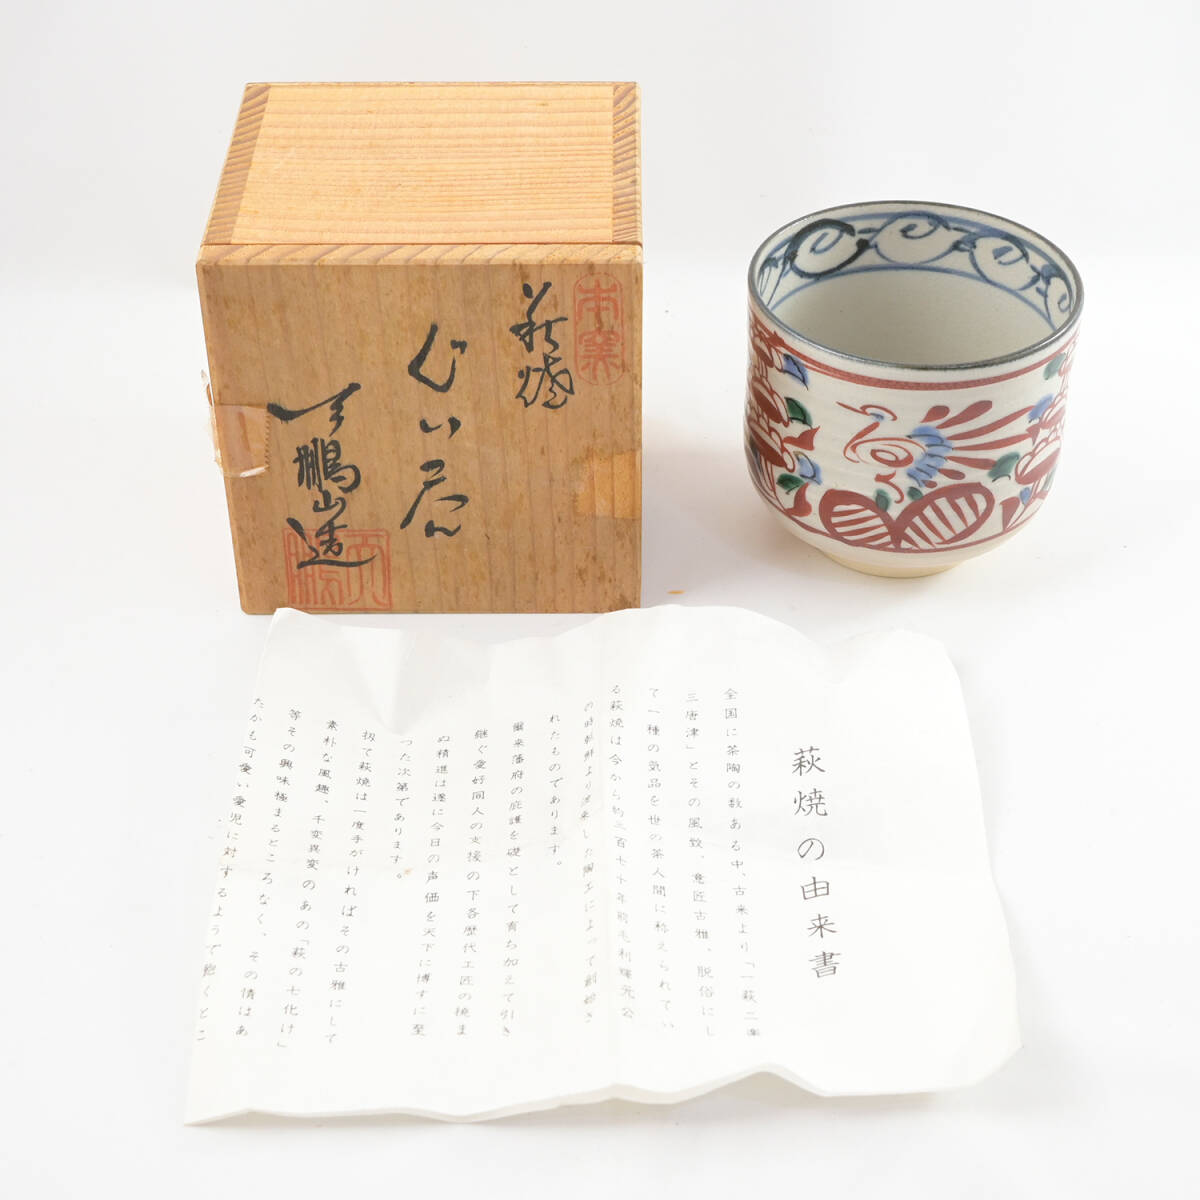 本窯
萩焼
ぐい呑
天鵬山造
天鵬
萩焼の由来書
全国に茶陶の数ある中、古来より「一萩二楽
三唐津」とその風致、意匠古雅、脱俗にし
て一種の気品を世の茶人間に称えられてい
る萩焼は今から約三百七十年前毛利輝元公
の時朝鮮より渡来した陶工によって創始さ
れたものであります。
爾来藩府の庇護を礎として育ち加えて引き
継ぐ愛好同人の支援の下各歴代工匠の撓ま
ぬ精進は遂に今日の声価を天下に博すに至
った次第であります。
扨て萩焼は一度手がければその古雅にして
素朴な風趣、千変異変のあの「萩の七化け」
等その興味極まるところなく、その情はあ
たかも可愛い愛児に対するようで飽くとこ